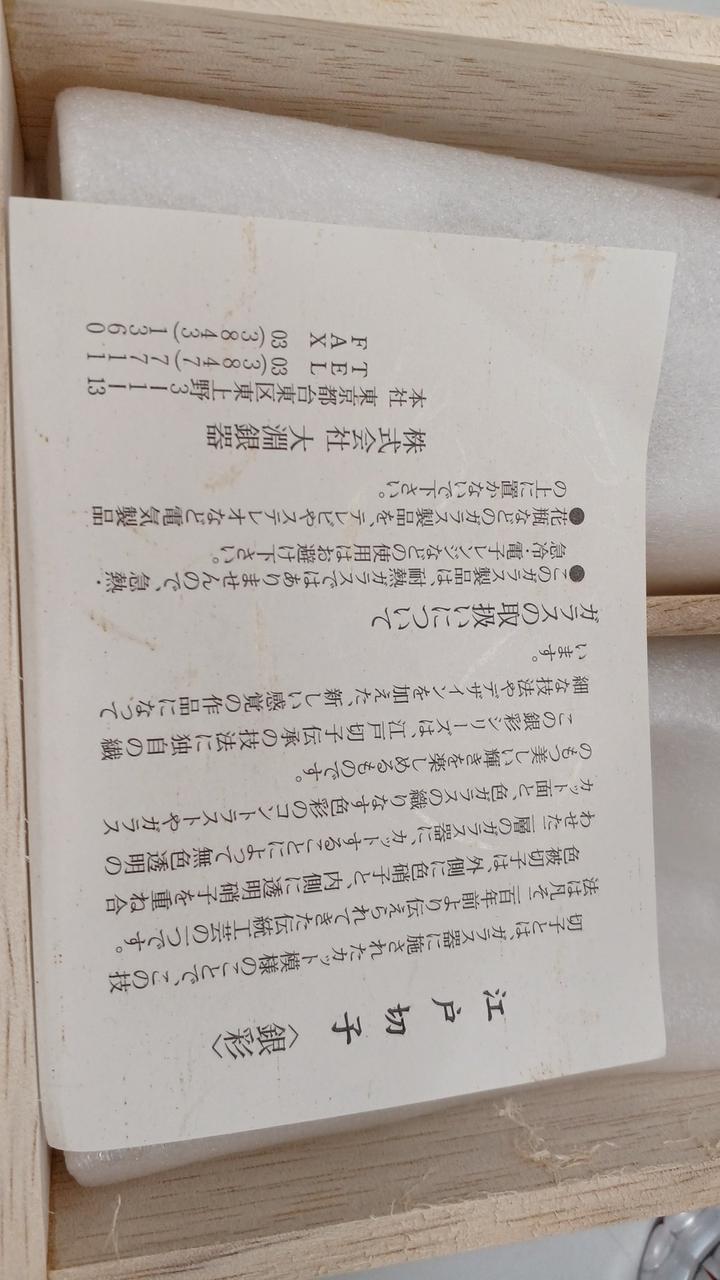 江戸切子〈銀彩〉
切子とは、ガラス器に施されたカット模様のことで、この技
法は凡そ二百年前より伝えられてきた伝統工芸の一つです。
色被切子は、外側に色硝子と、内側に透明硝子を重ね合
わせた二層のガラス器に、カットすることによって無色透明の
カット面と、色ガラスの織りなす色彩のコントラストやガラス
のもつ美しい輝きを楽しめるものです。
この銀彩シリーズは、江戸切子伝承の技法に独自の繊
細な技法やデザインを加えた、新しい感覚の作品になって
います。
ガラスの取扱いについて
●このガラス製品は、耐熱ガラスではありませんので、急熱・
急冷・電子レンジなどの使用はお避け下さい。
●花瓶などのガラス製品を、テレビやステレオなど電気製品
の上に置かないで下さい。
株式会社 大淵銀器
本社 東京都台東区東上野3ー1ー13
TEL 03(3847)7711
FAX 03(3843)1360